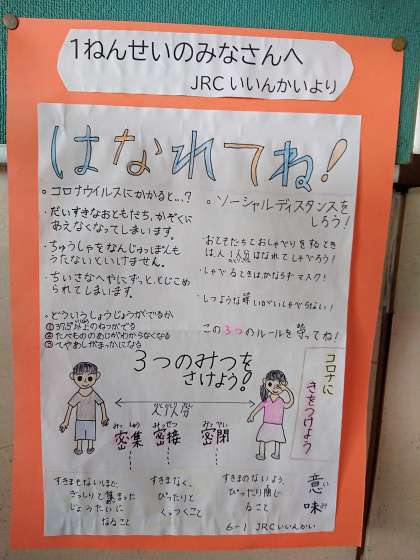 1ねんせいのみなさんへ
JRCいいんかいより
はなれてね!
○コロナウイルスにかかると…?
・だいすきなおともだち、かぞくに
あえなくなってしまいます。
・ちゅうしゃをなんじゅっぽんも
うたないといけません。
・ちいさなへやにずっと、とじこめ
られてしまいます。
○どういうしょうじょうがでるか
①37.5°以上のねつがでる
②たべもののあじがわからなくなる
③へやあしがまっかになる
○ソーシャルディスタンスを
しろう!
・おともだちとおしゃべりをするとき
は人1人分はなれてしゃべろう!
・しゃべるときはかならずマスク!
・ひつような時いがいしゃべらない!
この3つのルールを守ってね!
3つのみつを
さけよう!
コロナに
きをつけよう
人1人分
密集 密接 密閉
みっしゅう みっせつ みっぺい
すきまもないほど、
ぎっしりと集まった
じょうたいに
なること
すきまなく、
ぴったりと
くっつくこと
すきまのないよう、
ぴったり閉じ
ること
意味
いみ
6-1 JRCいいんかい